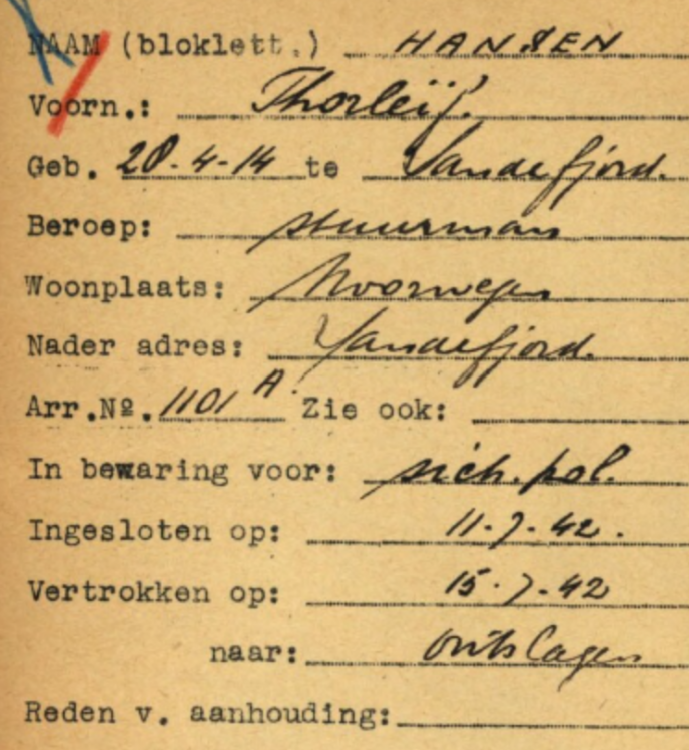 NAAM (blokLett.) HANSEN
Voorn.: Thorleif.
Geb. 28-4-14 te Sandefjord.
Beroep: stuurman
Woonplaats: Noorwegen
Nader adres: Sandefjord.
Arr.Nº. 1101 A. Zie ook:
In bewaring voor: sich. pol.
Ingesloten op: 11-7-42.
Vertrokken op: 15-7-42
naar: Ontslagen
Reden v. aanhouding: